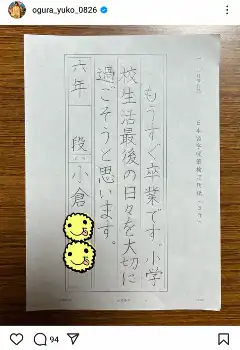 ogura_yuko_0826
もうすぐ卒業です。小学
校生活最後の日々を大切に
過ごそうと思います。
六年 段 小倉
94